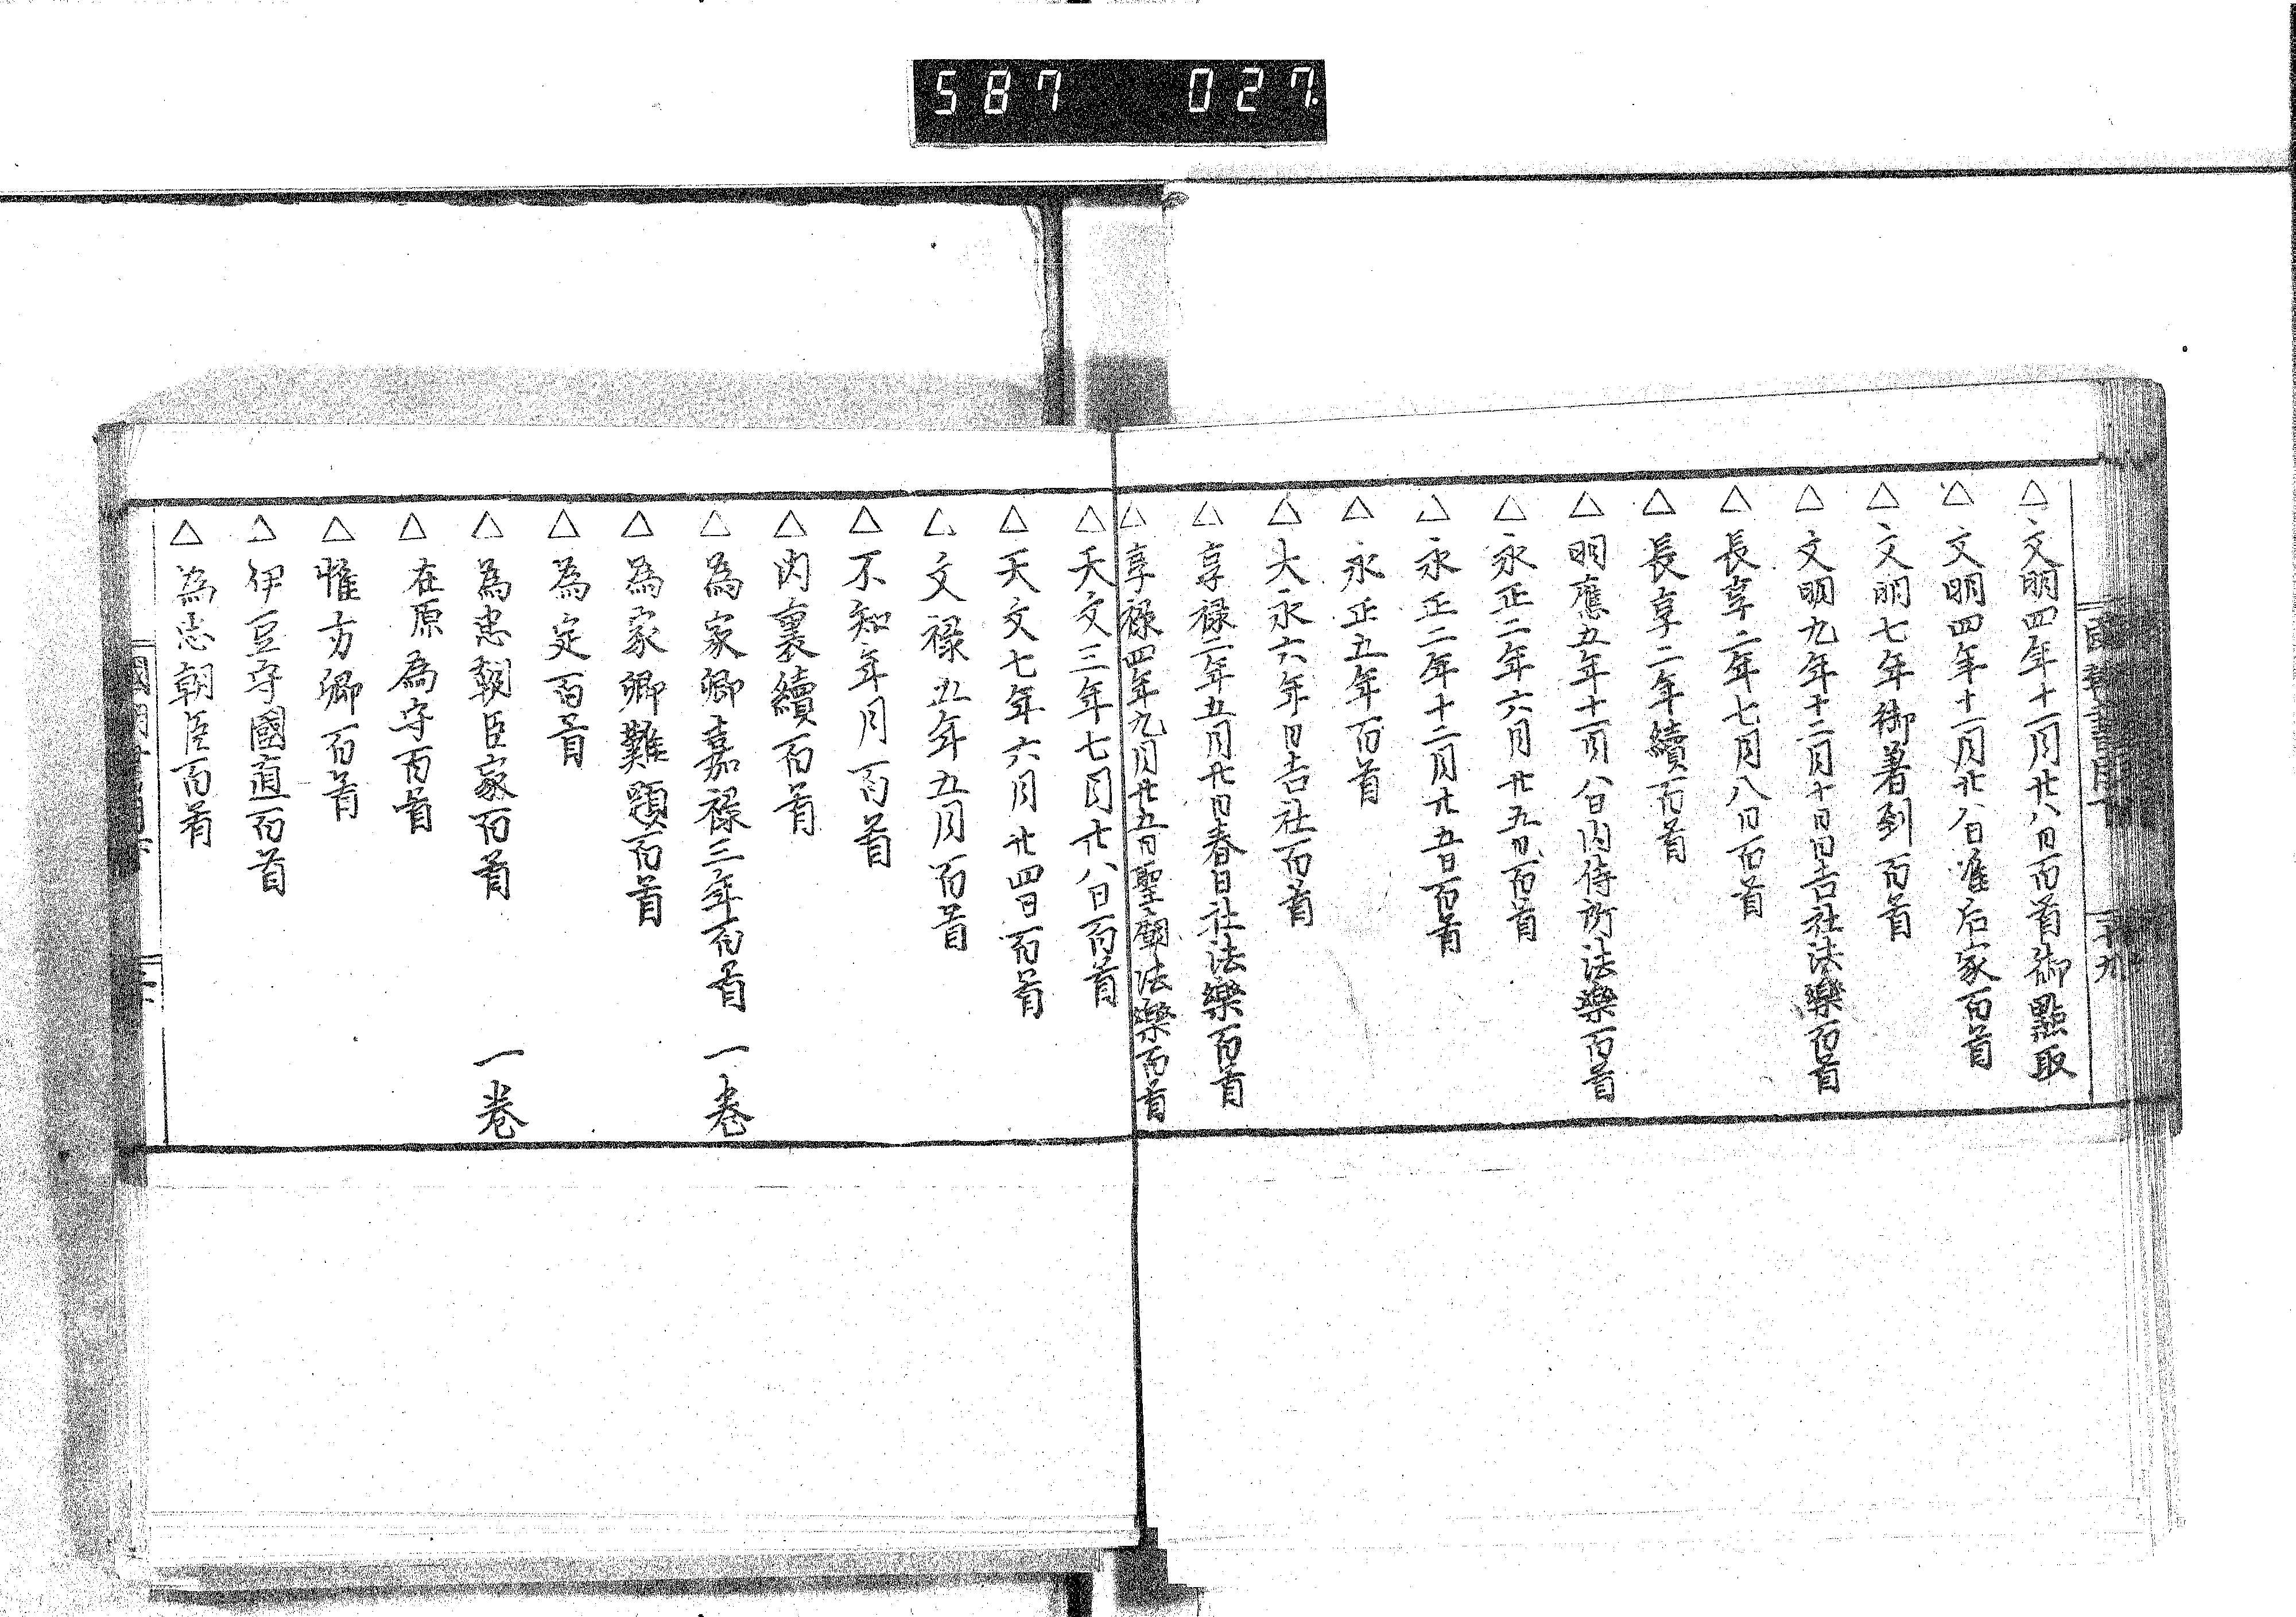 587 027
△文明四年十一月廿八日百首御點取
△文明四年十一月廿八日准后家百首
△文明七年御著到百首
△文明九年十二月十日日吉社法樂百首
△長享二年七月八日百首
△長享二年續百首
△明應五年十一月八日内侍所法樂百首
△永正二年六月廿五日百首
△永正二年十二月廿五日百首
△永正五年百首
△大永六年日吉社百首
△享禄二年五月廿日春日社法樂百首
△享禄四年九月廿五日聖廟法樂百首
△天文三年七月廿八日百首
△天文七年六月廿四日百首
△文禄五年五月百首
△不知年月百首
△内裏續百首
△為家卿嘉禄三年百首 一卷
△為家卿難題百首
△為定百首
△為忠朝臣家百首 一卷
△在原為守百首
△惟方卿百首
△伊豆守國直百首
△為忠朝臣百首